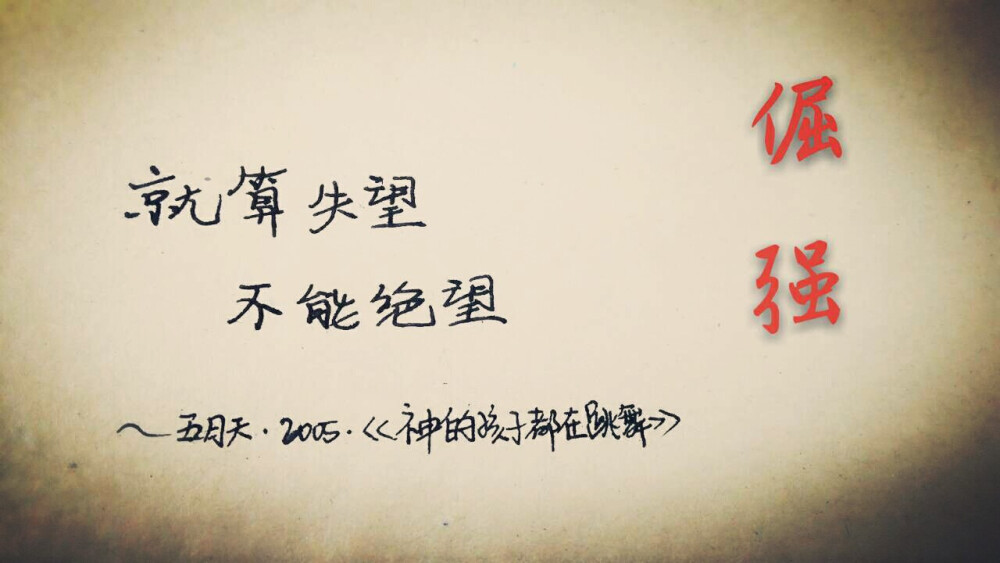 就算失望
不能绝望
～五月天·2005·《神的孩子都在跳舞》
倔强